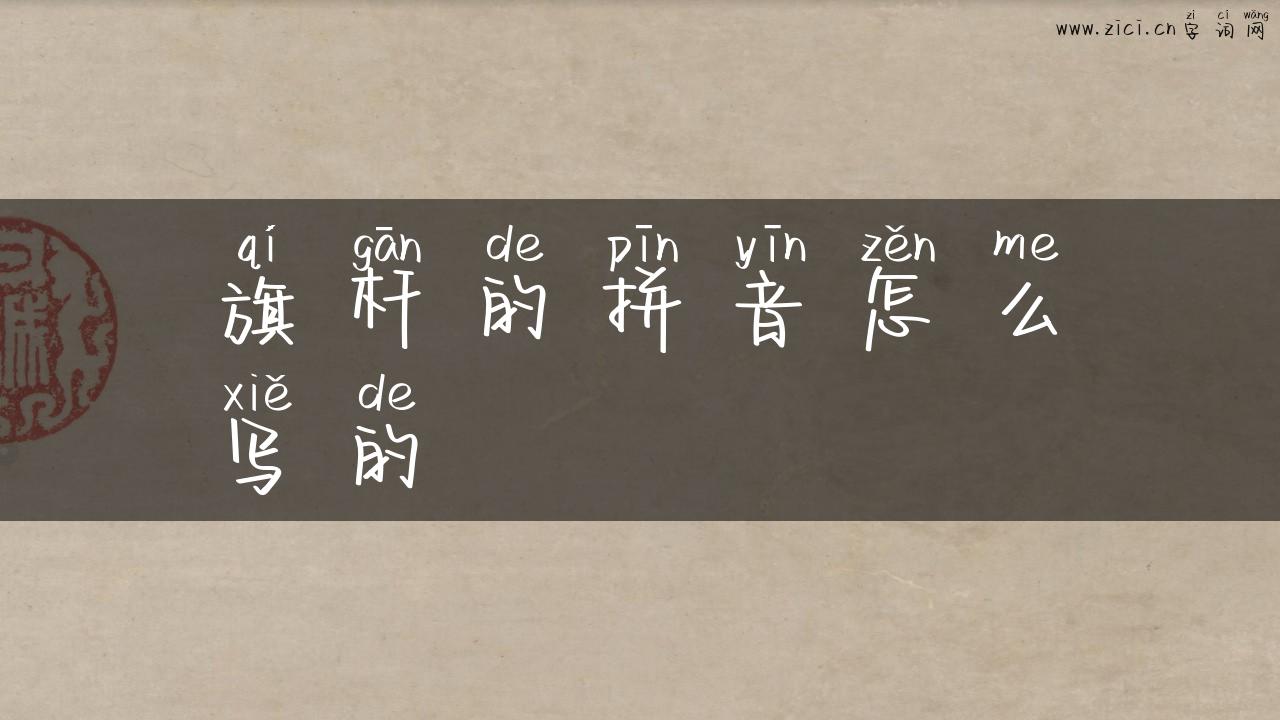 zì cí wǎng
www.zici.cn 字词网
qí gān de pīn yīn zěn me
旗杆的拼音怎么
xiě de
写的